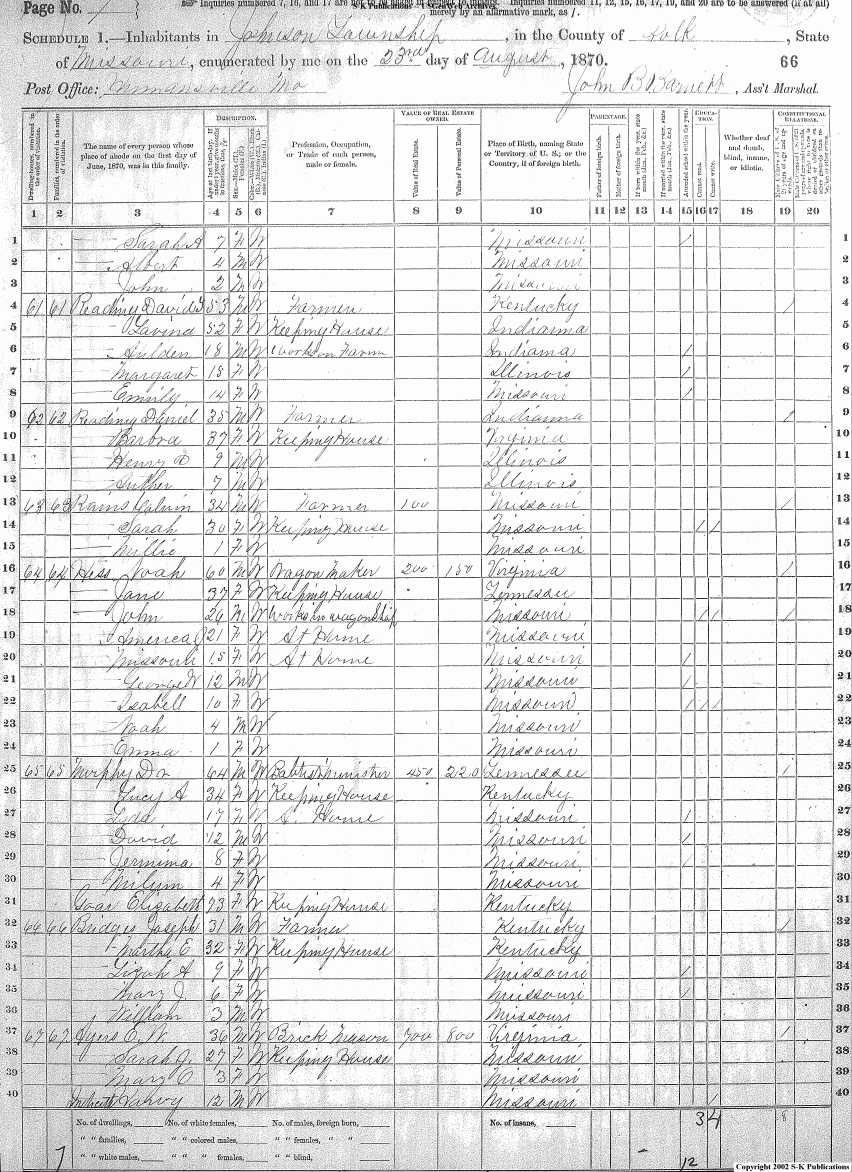 Page No. 
Inquiries numbered 7, 16, and 17 are not to be asked in respect to infants. Inquiries numbered 11, 12, 15, 16, 17, 19, and 20 are to be answered (if at all)
S-K Publications - USGenWeb Archives
merely by an affirmative mark, as /.
SCHEDULE 1.—Inhabitants in Jamison Township, in the County of Polk, State
of Missouri, enumerated by me on the 23rd day of August, 1870. 66
Post Office: Humansville Mo John B Barnett, Ass't Marshal.
Dwelling-houses, numbered in the order of visitation.
Families, numbered in the order of visitation.
The name of every person whose place of abode on the first day of June, 1870, was in this family.
DESCRIPTION.
Profession, Occupation, or Trade of each person, male or female.
VALUE OF REAL ESTATE OWNED.
Value of Real Estate.
Value of Personal Estate.
Place of Birth, naming State or Territory of U. S.; or the Country, if of foreign birth.
PARENTAGE.
Father of foreign birth.
Mother of foreign birth.
If born within the year, state month (Jan., Feb., &c.)
If married within the year, state month (Jan., Feb., &c.)
EDUCATION.
Attended school within the year.
Cannot read.
Cannot write.
Whether deaf and dumb, blind, insane, or idiotic.
CONSTITUTIONAL RELATIONS.
1 2 3 4 5 6 7 8 9 10 11 12 13 14 15 16 17 18 19 20
1 — Sarah A 7 F W Missouri / 1
2 — Albert 4 M W Missouri 2
3 — John 2 M W Missouri 3
4 61 61 Reading David 53 M W Farmer Kentucky / 4
5 — Lavina 52 F W Keeping House Indianna 5
6 — 18 M W Works on Farm Indiana / 6
7 — Margaret 15 F W Illinois / 7
8 — Emily 14 F W Missouri / 8
9 62 62 Reading Daniel 35 M W Farmer Indianna / 9
10 — Barbra 37 F W Keeping House Virginia 10
11 — Henry D 9 M W Illinois 11
12 — Luther 7 M W Illinois 12
13 63 63 Rains Calvin 34 M W Farmer 100 Missouri / 13
14 — Sarah 30 F W Keeping House Missouri / / 14
15 — Millie 1 F W Missouri 15
16 64 64 Hess Noah 60 M W Wagon Maker 200 150 Virginia / 16
17 — Jane 37 F W Keeping House Tennessee 17
18 — John 26 M W Works in wagon Shop Missouri / / / 18
19 — America J 21 F W At Home Missouri 19
20 — Missouri 15 F W At Home Missouri / 20
21 — George W 12 M W Missouri / 21
22 — Isabell 10 F W Missouri / / / 22
23 — Noah 4 M W Missouri 23
24 — Emma 1 F W Missouri 24
25 65 65 Murphy 64 M W Babtist Minister 450 220 Tennessee / 25
26 — Lucy A 34 F W Keeping House Kentucky 26
27 — Lyda 17 F W Home Missouri / 27
28 — David 12 M W Missouri / 28
29 — Jermima 8 F W Missouri / 29
30 — 4 F W Missouri 30
31 Elizabeth 73 F W Keeping House Kentucky 31
32 66 66 Bridges Joseph 31 M W Farmer Kentucky / 32
33 — Martha E 32 F W Keeping House Kentucky 33
34 — A 9 F W Missouri / 34
35 — Mary J 6 F W Missouri / 35
36 — William 3 M W Missouri 36
37 67 67 Ayers C W 36 M W Brick Mason 700 800 Virginia / 37
38 — Sarah J 27 F W Keeping House Missouri 38
39 — Mary C 3 F W Missouri 39
40 Harvy 12 M W Missouri / 40
No. of dwellings, No. of white females, No. of males, foreign born, No. of insane, 3 4 8
" " families, " " colored males, " " females, " "
" " white males, " " " females, " " blind, 12
Copyright 2002 S-K Publications